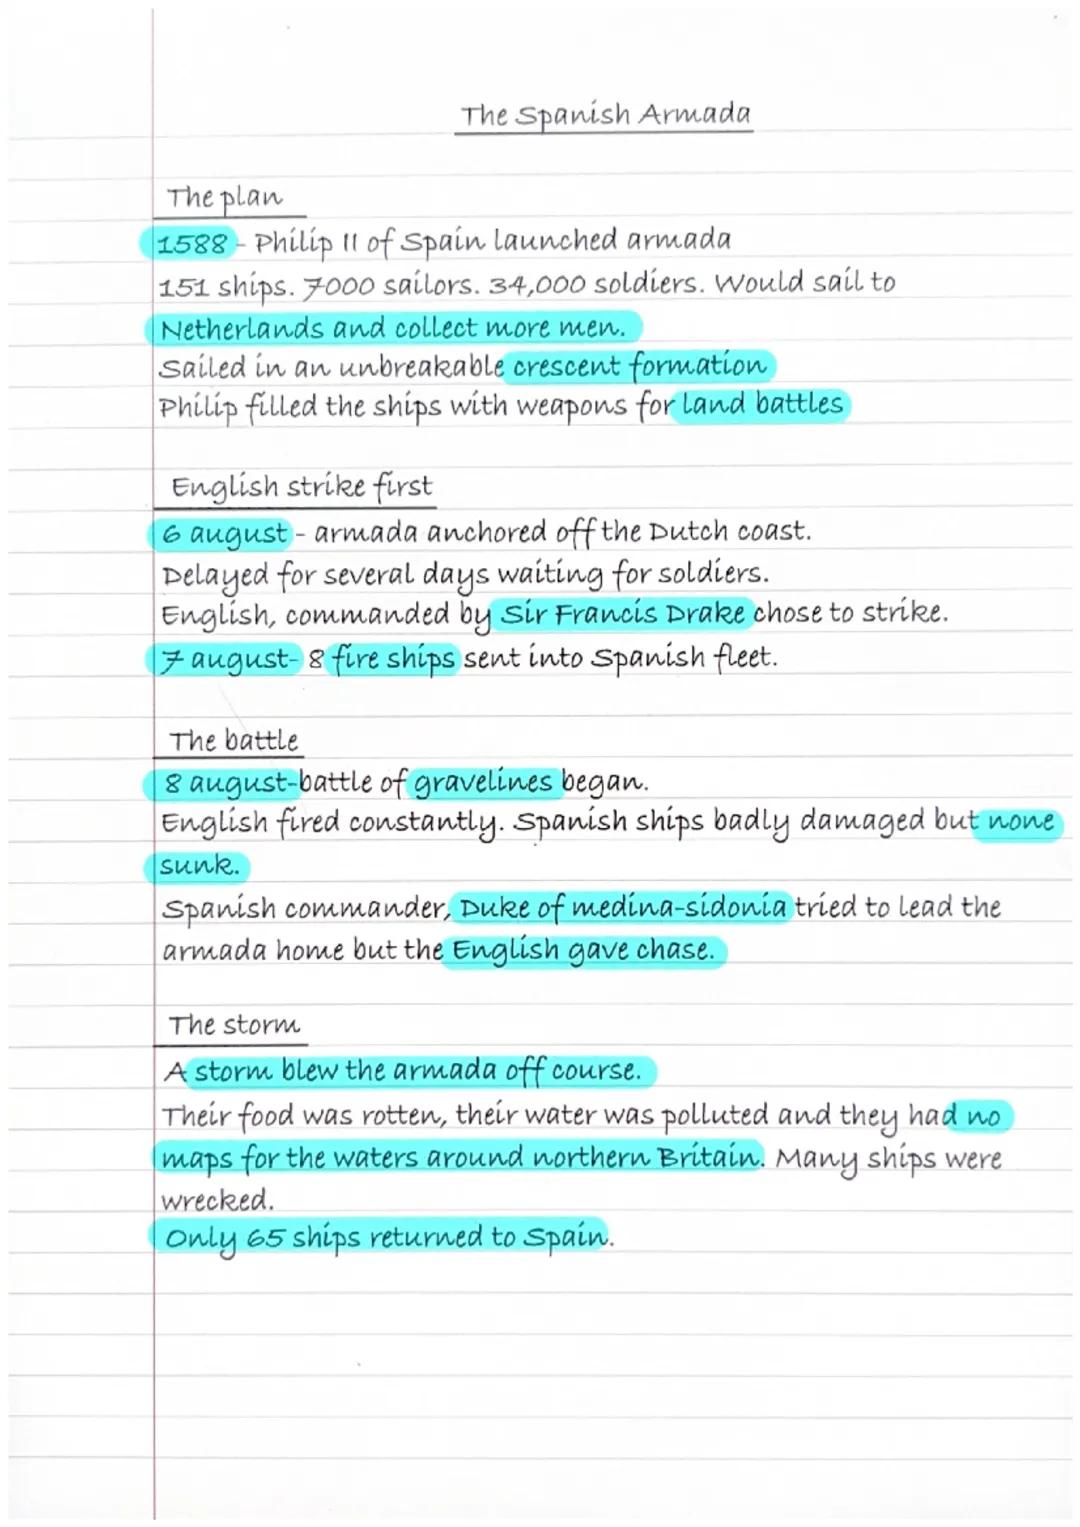 The Spanish Armada
The plan
1588 - Philip II of Spain launched armada
151 ships. 7000 sailors. 34,000 soldiers. Would sail to
Netherlands and collect more men.
Sailed in an unbreakable crescent formation
Philip filled the ships with weapons for land battles
English strike first
6 august - armada anchored off the Dutch coast.
Delayed for several days waiting for soldiers.
English, commanded by Sir Francis Drake chose to strike.
7 august- 8 fire ships sent into Spanish fleet.
The battle
8 august-battle of gravelines began.
English fired constantly. Spanish ships badly damaged but none
sunk.
Spanish commander, Duke of medina-sidonia tried to lead the
armada home but the English gave chase.
The storm
A storm blew the armada off course.
Their food was rotten, their water was polluted and they had no
maps for the waters around northern Britain. Many ships were
wrecked.
Only 65 ships returned to Spain.